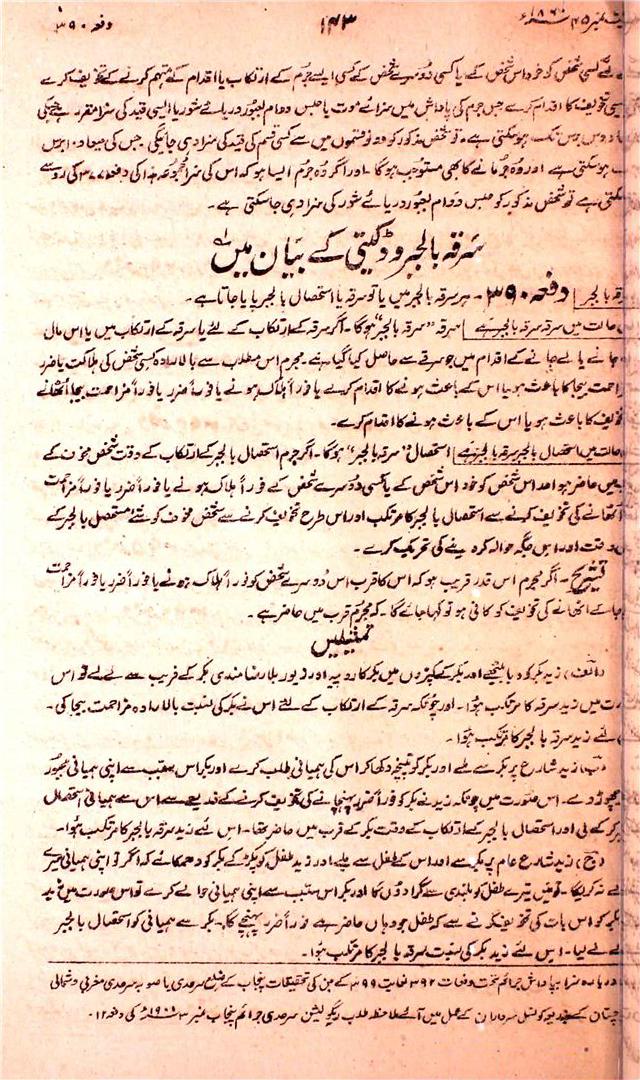 ایکٹ نمبر ۴۵ ۱۸۶۰ء ۱۴۳ دفعہ ۳۹۰
لئے کسی شخص کو خود اس شخص کے یا کسی دوسرے شخص کے کسی ایسے جرم کے ارتکاب یا اقدام کے متہم کرنے کے تخویف کرے
ایسی تخویف کا اقدام کرے جس جرم کی پاداش میں سزائے موت یا حبس دوام بعبور دریائے شور یا ایسی قید کی سزا مقرر ہے جس کی
میعاد دس برس تک ہوسکتی ہے۔ تو شخص مذکور کو دونوں قسموں میں سے کسی قسم کی قید کی سزا دی جائیگی جس کی میعاد ۱۰ برس
تک ہوسکتی ہے اور وہ جرمانے کا بھی مستوجب ہوگا۔ اور اگر وہ جرم ایسا ہو کہ اس کی سزا مجموعہ ہذا کی دفعہ ۳۷۷ کی رو سے
ہوسکتی ہے تو شخص مذکور کو حبس دوام بعبور دریائے شور کی سزا دی جاسکتی ہے۔
سرقہ بالجبر و ڈکیتی کے بیان میں
سرقہ بالجبر دفعہ ۳۹۰۔ ہر سرقہ بالجبر میں یا تو سرقہ یا استحصال بالجبر پایا جاتا ہے۔
کس حالت میں سرقہ سرقہ بالجبر ہے سرقہ "سرقہ بالجبر" ہوگا۔ اگر سرقہ کے ارتکاب کے لئے یا سرقہ کے ارتکاب میں یا اس مال
لے جانے یا لے جانے کے اقدام میں جو سرقے سے حاصل کیا گیا ہے۔ مجرم اس مطلب سے بالارادہ کسی شخص کی ہلاکت یا ضرر
یا مزاحمت بیجا کا باعث ہو یا اس کے باعث ہونے کا اقدام کرے یا فوراً ہلاک ہونے یا فوراً ضرر یا فوراً مزاحمت بیجا اٹھانے
کی تخویف کا باعث ہو یا اس کے باعث ہونے کا اقدام کرے۔
کس حالت میں استحصال بالجبر سرقہ بالجبر ہے استحصال "سرقہ بالجبر" ہوگا۔ اگر مجرم استحصال بالجبر کے ارتکاب کے وقت شخص مخوف کے
قرب میں حاضر ہو اور اس شخص کو خود اس شخص کے یا کسی دوسرے شخص کے فوراً ہلاک ہونے یا فوراً ضرر یا فوراً مزاحمت
بیجا اٹھانے کی تخویف کرنے سے استحصال بالجبر کا مرتکب اور اس طرح تخویف کرنے سے شخص مخوف کو شئے مستحصل بالجبر کے
اسی وقت اور اسی جگہ حوالہ کر دینے کی تحریک کرے۔
تشریح۔ اگر مجرم اس قدر قریب ہو کہ اس کا قرب اس دوسرے شخص کو فوراً ہلاک ہونے یا فوراً ضرر یا فوراً مزاحمت
بیجا کے اٹھانے کی تخویف کو کافی ہو تو کہا جائے گا۔ کہ مجرم قرب میں حاضر ہے۔
تمثیلیں
(الف) زید بکر کو دبا بیٹھے اور بکر کے کپڑوں میں بکر کا روپیہ اور زیور بلا رضامندی بکر کے فریب سے لے لے تو اس
صورت میں زید سرقہ کا مرتکب ہوا۔ اور چونکہ سرقہ کے ارتکاب کے لئے اس نے بکر کی نسبت بالارادہ مزاحمت بیجا کی۔
اس لئے زید سرقہ بالجبر کا مرتکب ہوا۔
(ب) زید شارع پر بکر سے ملے اور بکر کو تپنچہ دکھا کر اس کی ہمیانی طلب کرے اور بکر اس سبب سے اپنی ہمیانی مجبور
ہو کر چھوڑ دے۔ اس صورت میں چونکہ زید نے بکر کو فوراً ضرر پہنچانے کی تخویف کرنے کے ذریعے سے اس سے ہمیانی استحصال
بالجبر کر کے لی اور استحصال بالجبر کے ارتکاب کے وقت بکر کے قرب میں حاضر تھا۔ اس لئے زید سرقہ بالجبر کا مرتکب ہوا۔
(ج) زید شارع عام پر بکر سے اور اس کے طفل سے ملے اور زید طفل کو پکڑ کے بکر کو دھمکائے کہ اگر تو اپنی ہمیانی میرے
حوالے نہ کریگا۔ تو میں تیرے طفل کو بلندی سے گرا دوں گا اور بکر اس سبب سے اپنی ہمیانی حوالے کرے تو اس صورت میں زید
نے بکر کو اس بات کی تخویف کرنے سے کہ طفل جو وہاں حاضر ہے فوراً ضرر پہنچے گا۔ بکر سے ہمیانی کو استحصال بالجبر
لے لیا۔ اس لئے زید بکر کی نسبت سرقہ بالجبر کا مرتکب ہوا۔
دربارہ سزا بپاداش جرائم تحت دفعات ۳۹۲ لغایت ۳۹۹ کے جن کی تحقیقات پنجاب کے ضلع سرحدی یا صوبہ سرحدی مغربی و شمالی
بلوچستان کے بذریعہ کونسل سرداران کے عمل میں آئے ملاحظہ طلب ریگولیشن سرحدی جرائم پنجاب نمبر ۳ ۱۹۰۱ء کی دفعہ ۱۲۔